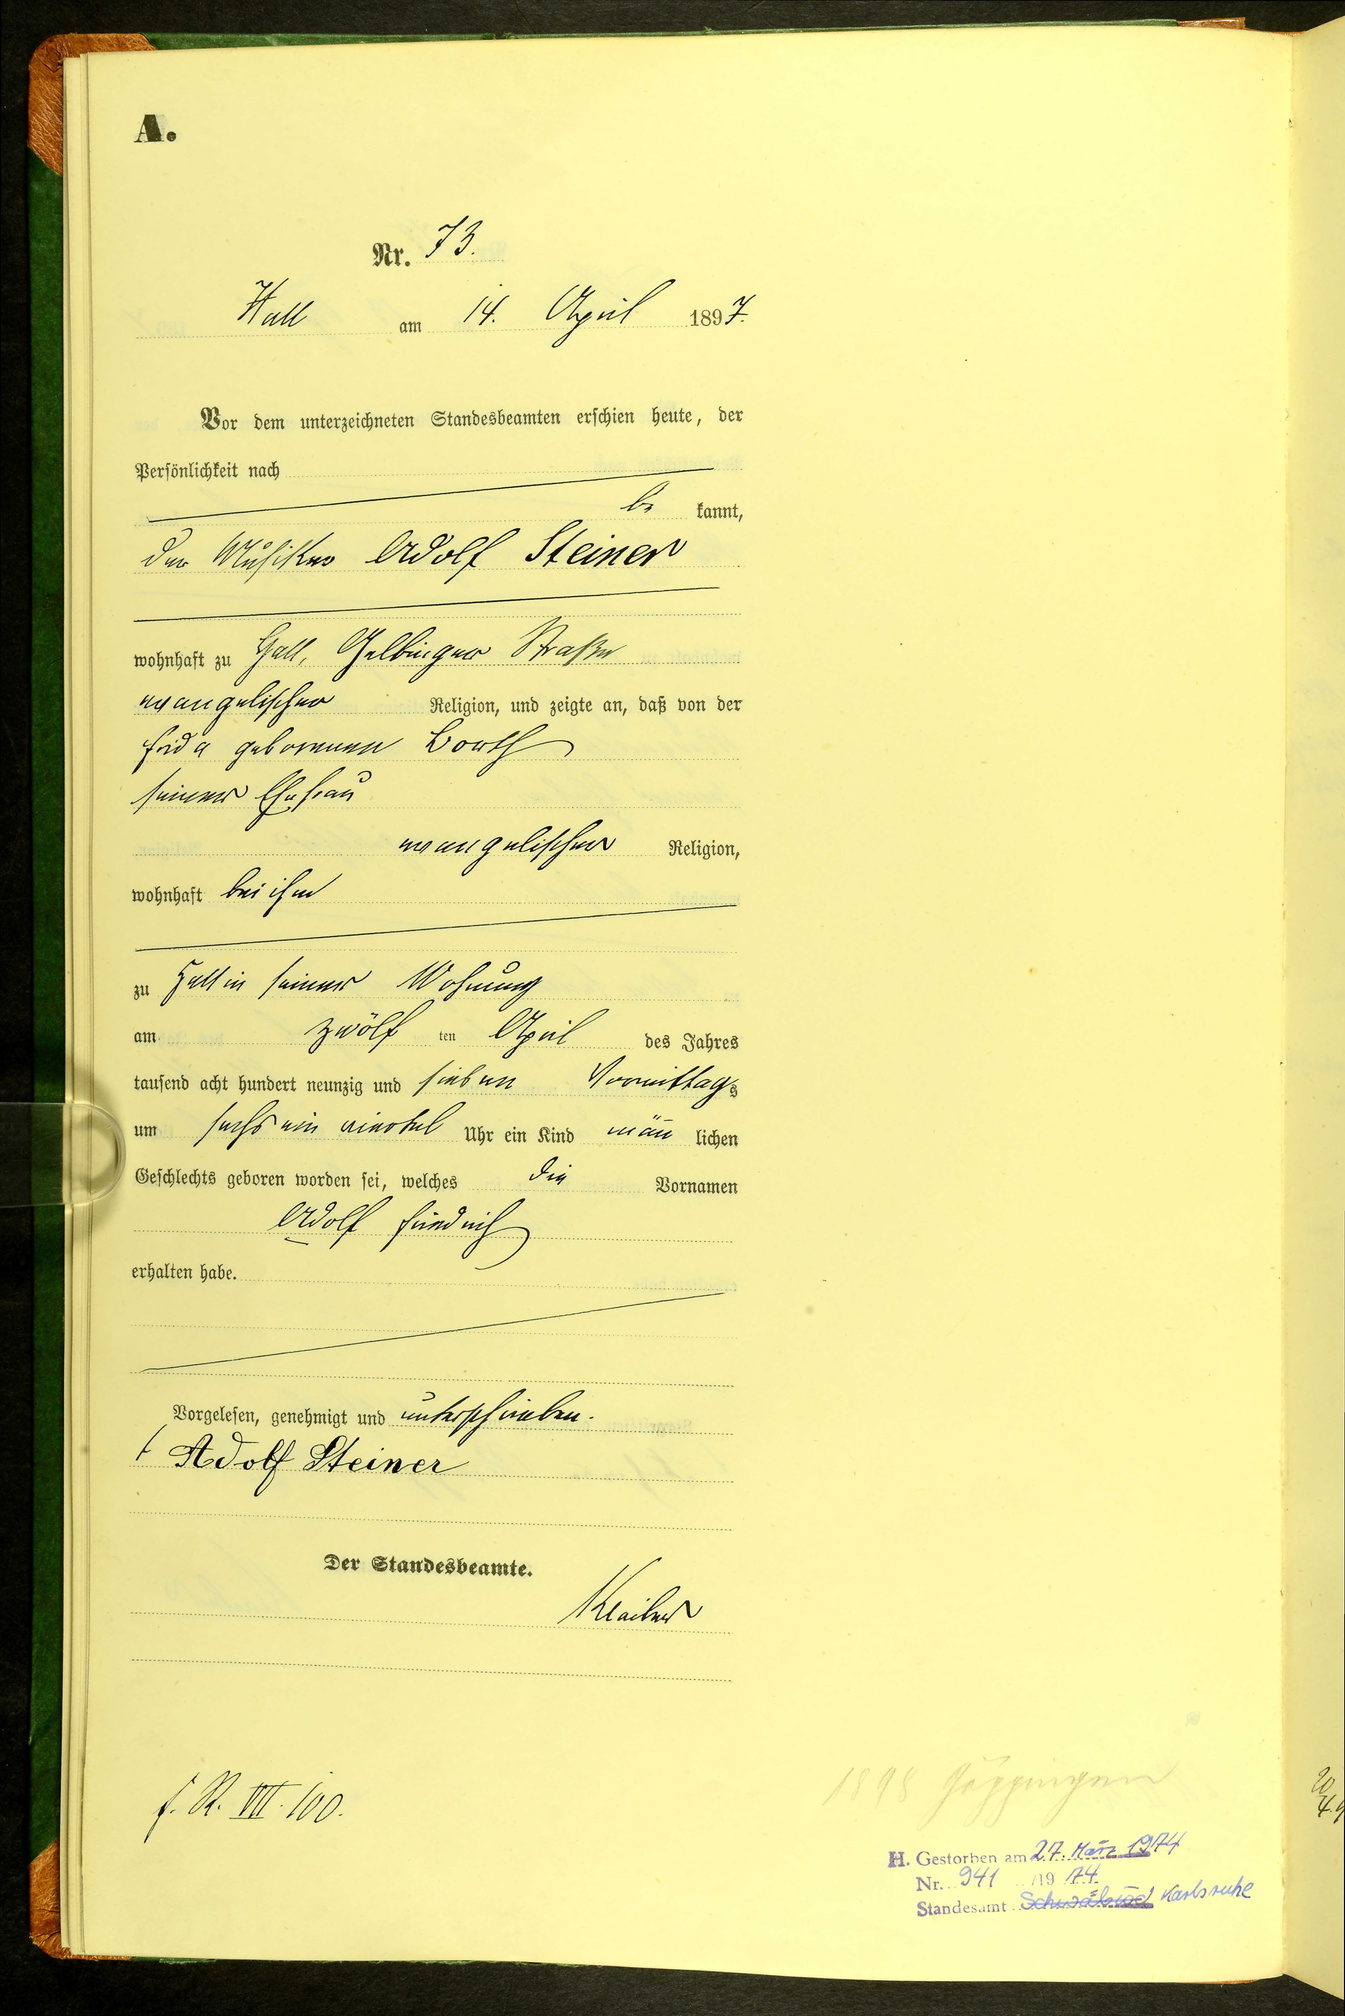 A.
Nr. 73.
Hall am 14. April 1897.
Vor dem unterzeichneten Standesbeamten erschien heute, der
Persönlichkeit nach
be kannt,
der Musiker Adolf Steiner
wohnhaft zu Hall, Gelbinger Straße
evangelischer Religion, und zeigte an, daß von der
Frida geborenen Borth
seiner Ehefrau
evangelischer Religion,
wohnhaft bei ihm
zu Hall in seiner Wohnung
am zwölf ten April des Jahres
tausend acht hundert neunzig und sieben Vormittags
um sechs ein viertel Uhr ein Kind männ lichen
Geschlechts geboren worden sei, welches die Vornamen
Adolf Friedrich
erhalten habe.
Vorgelesen, genehmigt und unterschrieben.
Adolf Steiner
Der Standesbeamte.
Klaiber
f. R. VII. 100.
1898 Göppingen
H. Gestorben am 27. März 1974
Nr. 941 /19 74
Standesamt Karlsruhe